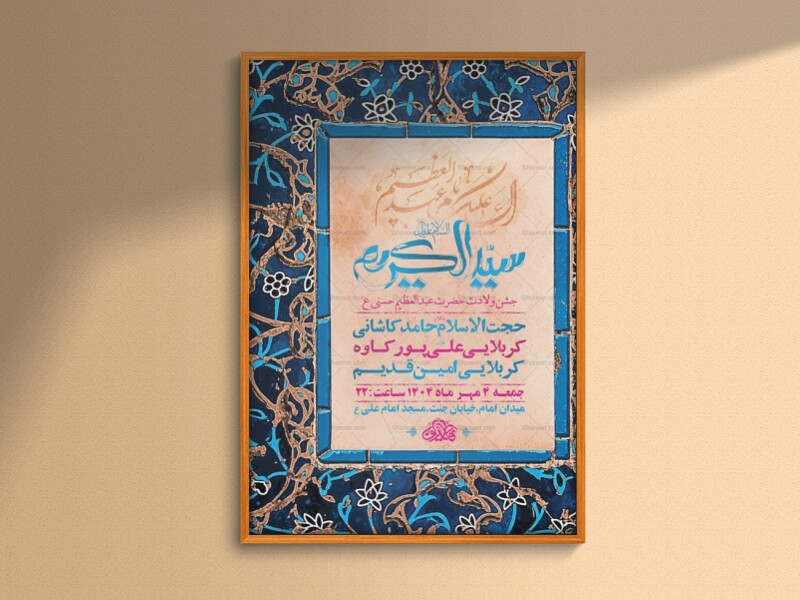 السلام علیک
سیدالکریم
جشن ولادت حضرت عبدالعظیم حسنی ع
حجت الاسلام حامد کاشانی
کربلایی علی پور کاوه
کربلایی امین قدیم
جمعه ۴ مهر ماه ۱۴۰۴ ساعت: ۲۲
میدان امام، خیابان جنت، مسجد امام علی ع